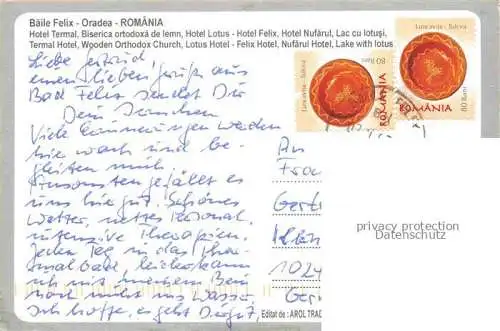 Băile Felix - Oradea - ROMÂNIA
Hotel Termal, Biserica ortodoxă de lemn, Hotel Lotus - Hotel Felix, Hotel Nufărul, Lac cu lotuși,
Termal Hotel, Wooden Orthodox Church, Lotus Hotel - Felix Hotel, Nufărul Hotel, Lake with lotus
Luncavița - Tulcea
80 Bani
ROMÂNIA
Luncavița - Tulcea
80 Bani
ROMÂNIA
Liebe
einen lieben Gruß aus
Bad Felix sendet Dir
Dein
Viele Erinnerungen werden
hie wach und be-
gleiten mich.
Ansonsten gefällt es
uns hie gut. Schönes
Wetter, nettes Personal
intensive Therapien.
Jeden Tag in das Ther-
malbad, leider kann
ich mit meinem Bein
nicht ins Wasser.
Ich hoffe, es geht Dir gut,
An
Frau
1024
Ger
privacy protection
Datenschutz
Editat de: AROL TRAD